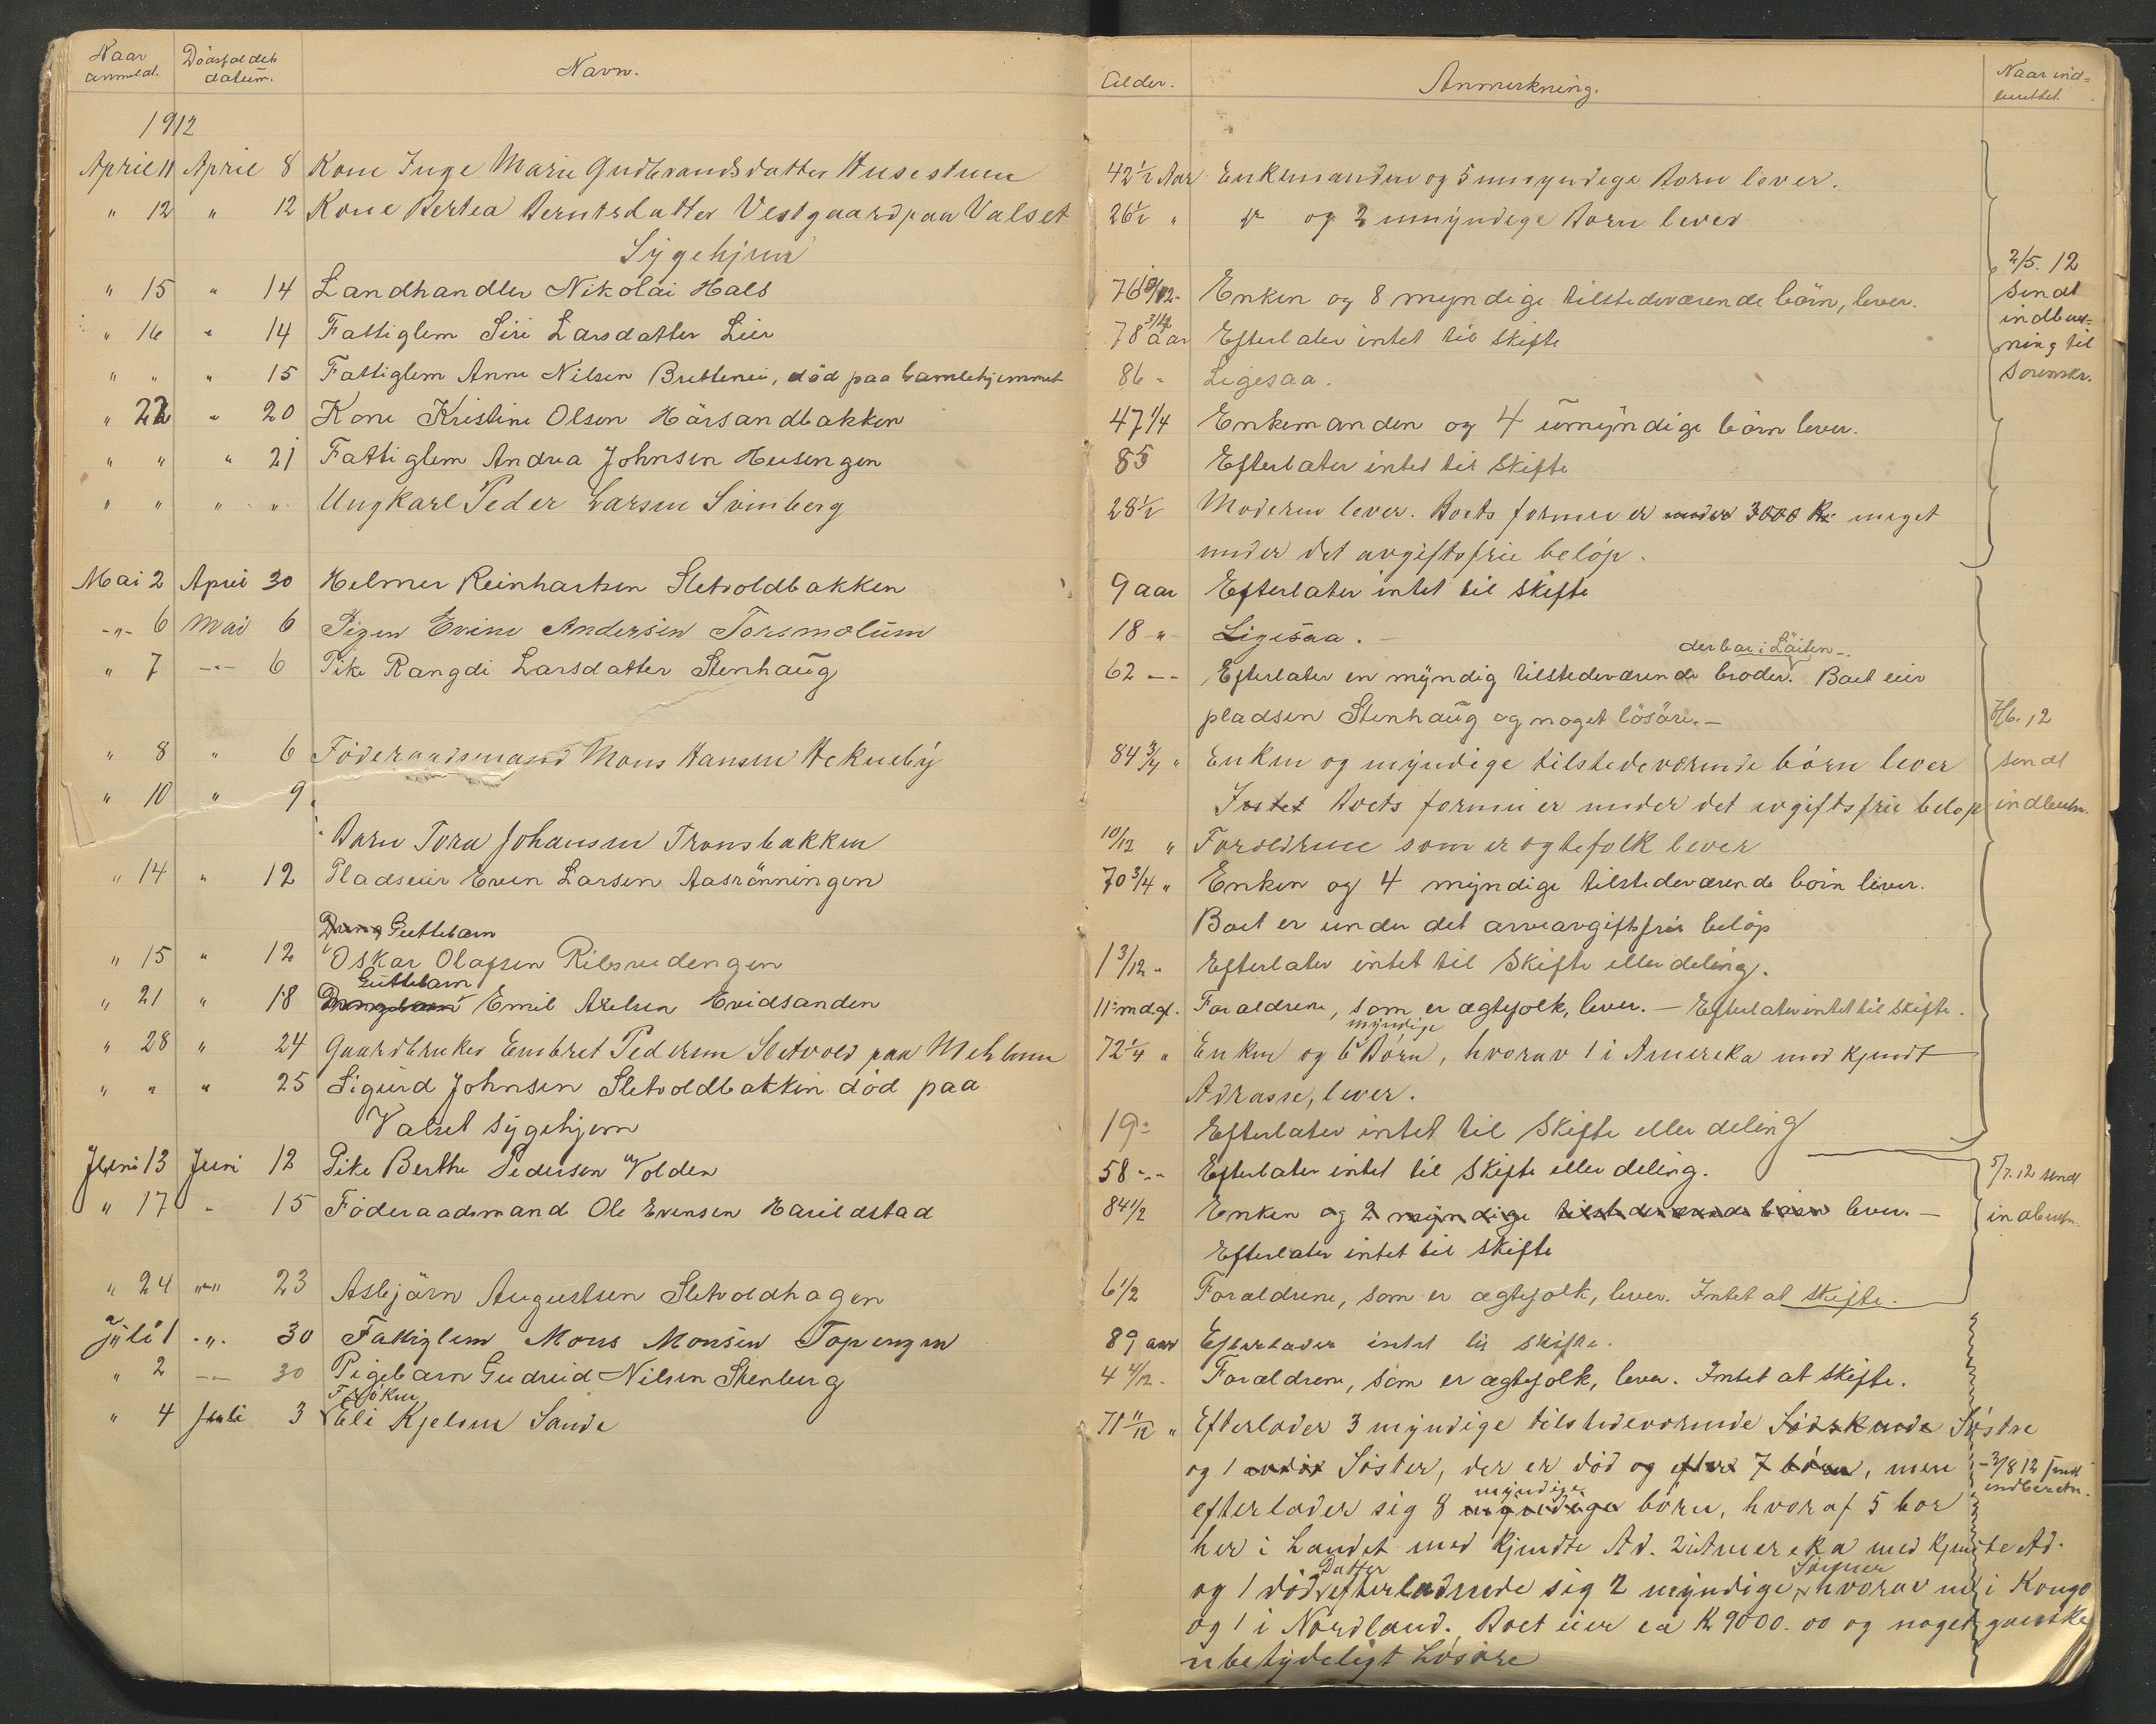 Naar anmeldt. Dödsfaldets datum. Navn.
1912
April 11 April 8 Kone Inge Marie Gudbrandsdatter Husestuen
" 12 " 12 Kone Bertea Berntsdatter Vestgaard paa Valset
Sygehjem
" 15 " 14 Landhandler Nikolai Hals
" 16 " 14 Fattiglem Siri Larsdatter Lier
" " " 15 Fattiglem Anne Nilsen Brettenei, död paa Gamlehjemmet
" 22 " 20 Kone Kristine Olsen Hårsandbakken
" " " 21 Fattiglem Andrea Johnsen Heesengen
" " " " Ungkarl Peder Larsen Svinberg
Mai 2 April 30 Helmer Reinhartsen Sletvoldbakken
-"- 6 Mai 6 Pigen Evine Andersen Torsmolum
" 7 -"- 6 Pike Rangdi Larsdatter Stenhaug
" 8 " 6 Föderaadsmand Mons Hansen Hekneby
" 10 " 9
Barn Tora Johansen Tronsbakken
" 14 " 12 Pladseier Even Larsen Aasrönningen
Guttebarn
" 15 " 12 Oskar Olafsen Ribsrudengen
Guttebarn
" 21 " 18 Drengebarn Emil Axelsen Evidsanden
" 28 " 24 Gaardbruker Embret Pedersen Sletvold paa Melbum
" " " 25 Sigurd Johnsen Sletvoldbakken död paa
Valset sygehjem
Juni 13 Juni 12 Pike Berthe Pedersen Volden
" 17 " 15 Föderaadsmand Ole Evensen Harildstad
" 24 "-" 23 Asbjörn Augustsen Sletvoldhagen
Juli 1 -"- 30 Fattiglem Mons Monsen Topengen
" 2 -"- 30 Pigebarn Gudrud Nilsen Stenberg
Fröken
" 4 Juli 3 Eli Kjelsen Sande
Alder. Anmerkning. Naar indberettet.
42 1/2 Aar Enkemanden og 5 umyndige Born lever.
26 1/2 " " og 2 umyndige Born lever
2/5. 12
76 10/12 - Enken og 8 myndige tilstedeværende börn, lever. Sendt
78 3/4 aar Efterlater intet til skifte indberetning til
86 - Ligesaa. Sorenskr.
47 1/4 Enkemanden og 4 umyndige börn lever.
85 Efterlater intet til skifte
28 1/2 Moderen lever. Boets formue er under 3000 Kr meget
under det avgiftsfrie belöp.
9 aar Efterlater intet til skifte
18 -"- Ligesaa. -
der bor i Löiten -
62 -"- Efterlater en myndig tilstedeværende broder. Boet eier
pladsen Stenhaug og noget lösöre. - 7/6. 12
84 3/4 " Enken og myndige tilstedeværende börn lever sendt
Intet Boets formue er under det avgiftsfrie belop indberetn.
10/12 " Foreldrene som er egtefolk lever
70 3/4 " Enken og 4 myndige tilstedeværende börn lever.
Boet er under det arveavgiftsfrie belöp
1 3/12 - Efterlater intet til Skifte eller deling.
11 mdgl. Foraldrene, som er ægtefolk, lever. - Efterlater intet til skifte.
myndige
72 1/4 " Enken og 6 Börn, hvorav 1 i Amereka med kjendt
Adrasse, lever.
19 - Efterlater intet til Skifte eller deling
58 -"- Efterlater intet til Skifte eller deling. 5/7. 12 sendt
84 1/2 Enken og 2 myndige tilstedeværende börn lever. - indberetn.
Efterlater intet til skifte
6 1/2 Foraldrene, som er ægtefolk, lever. Intet at skifte.
89 aar Efterlader intet til skifte.
4 4/12 - Forældrene, som er ægtefolk, lever. Intet at skifte.
71 11/12 " Efterlader 3 myndige tilstedeværende Södskende Söstre
og 1 Söster, der er död og efter 7 börn, men - 3/8 12 sendt
myndige indberetn.
efterlader sig 8 myndige börn, hvoraf 5 bor
her i Landet med kjendte Ad. 2 i Amereka med kjendte Ad.
Datter Sönner
og 1 död efterladende sig 2 myndige, hvorav en i Kongo
og 1 i Nordland. Boet eier ca K 9000.00 og noget ganske
ubetydeligt Lösöre